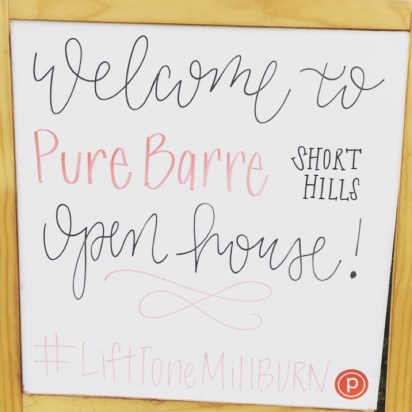 welcome to
Pure Barre SHORT HILLS
open house!
#LiftToneMillBURN p